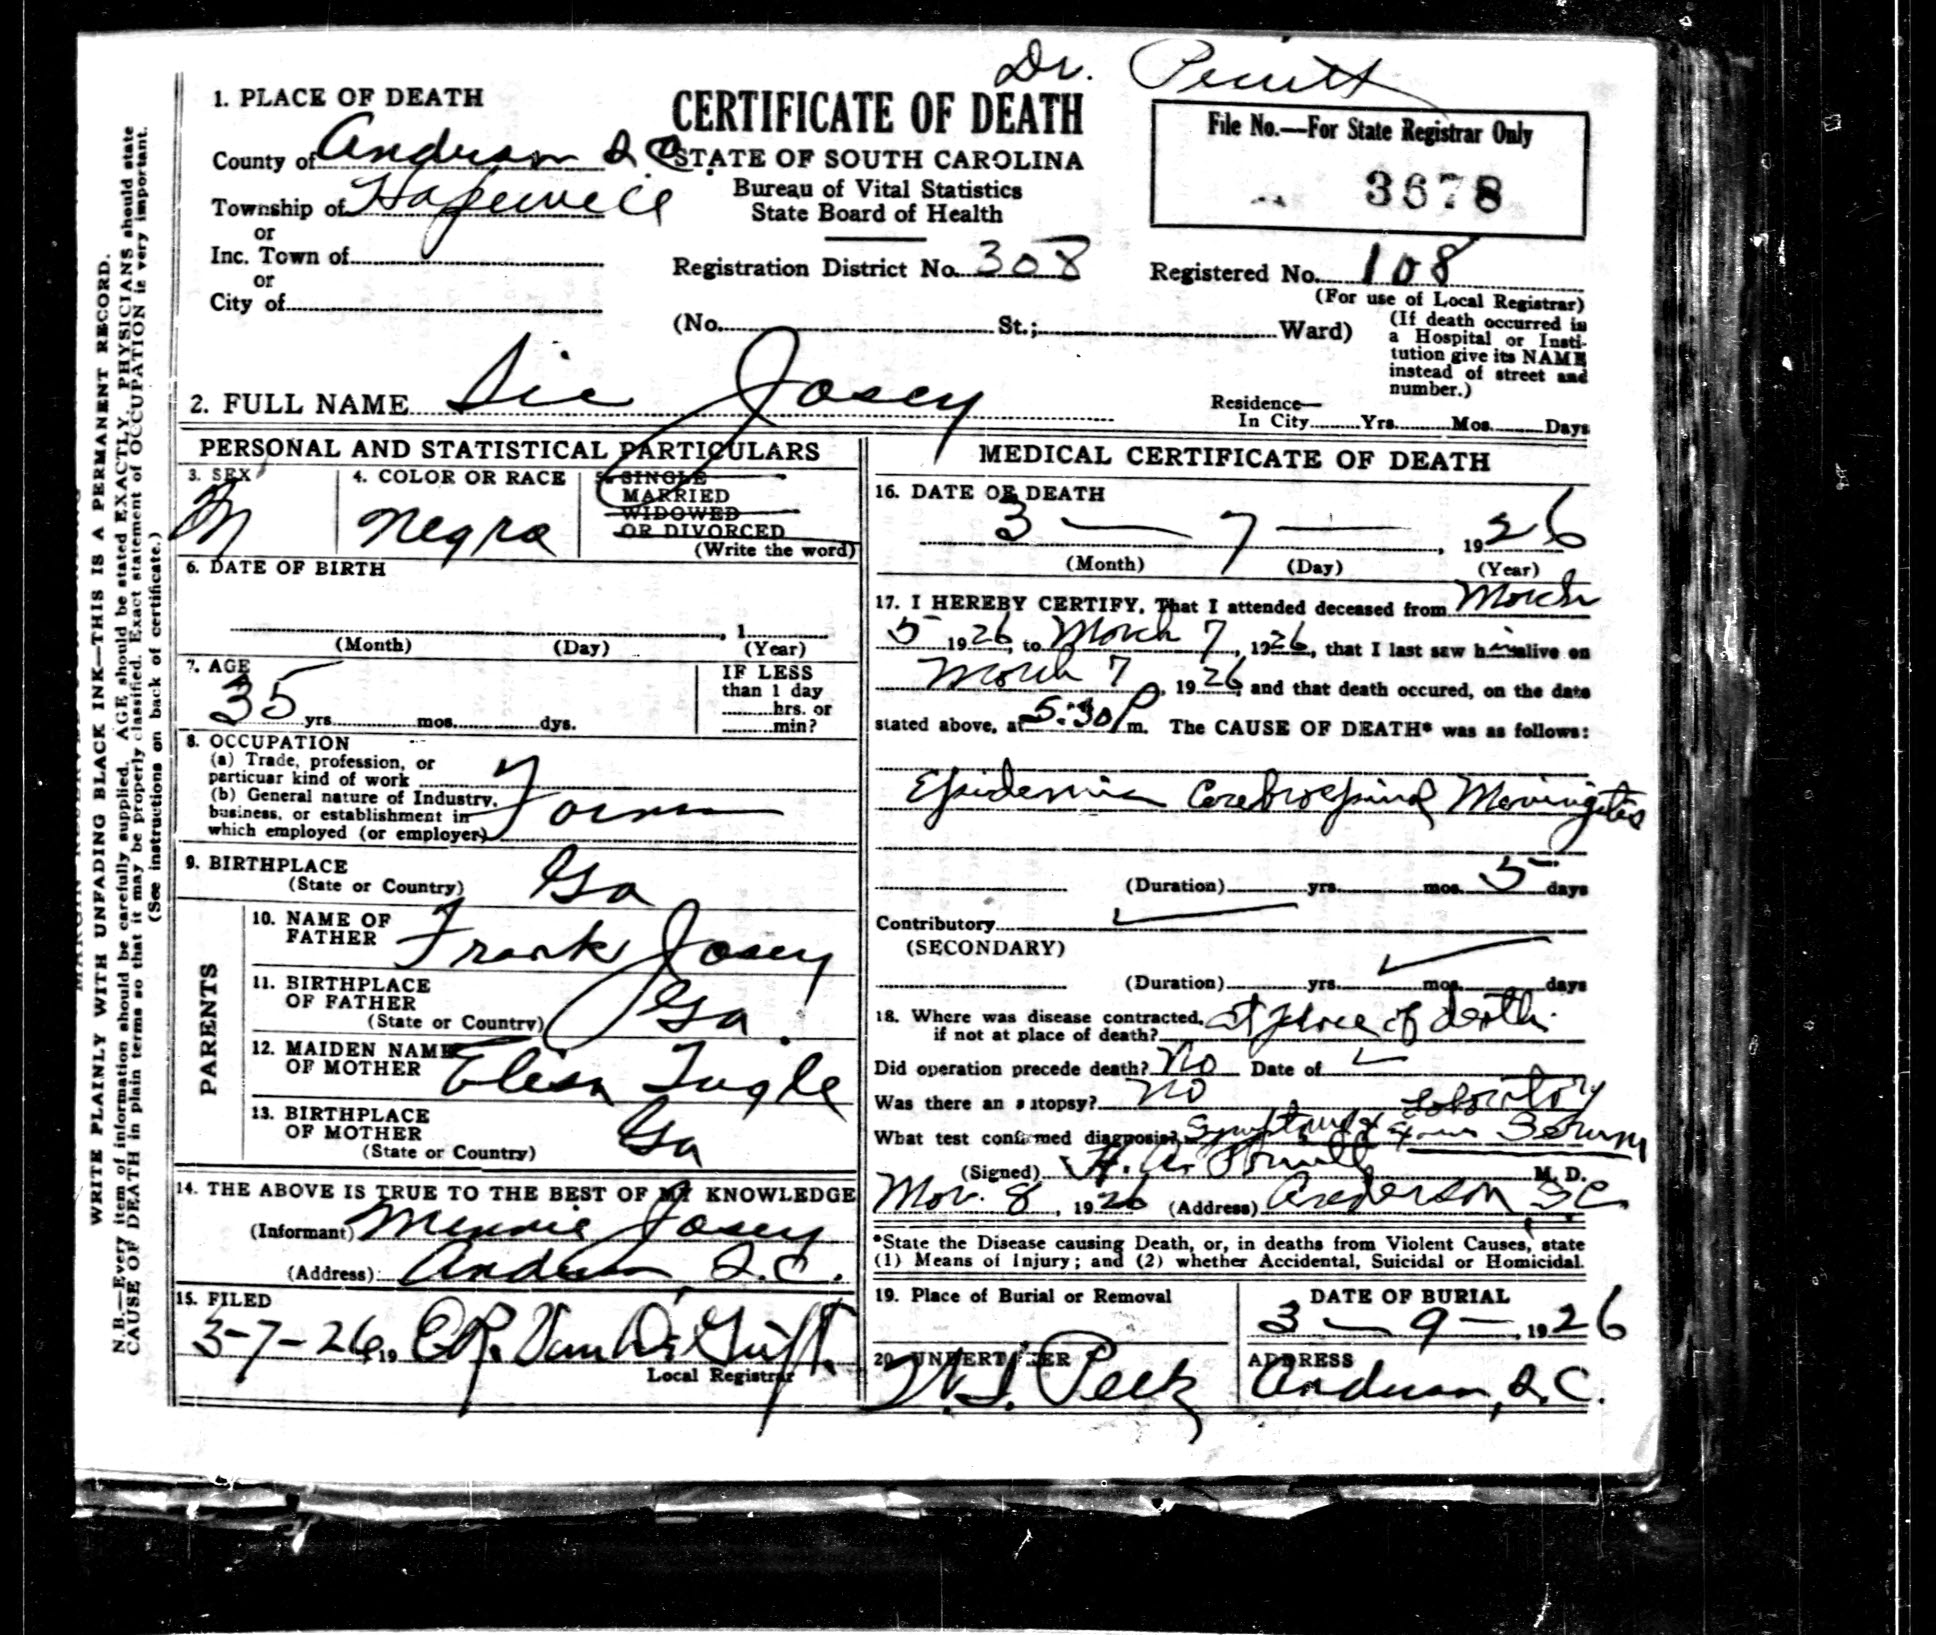 Dr. Pruitt
1. PLACE OF DEATH
CERTIFICATE OF DEATH
STATE OF SOUTH CAROLINA
Bureau of Vital Statistics
State Board of Health
File No.—For State Registrar Only
3678
County of Anderson S.C.
Township of Hopewell
or
Inc. Town of
or
City of
Registration District No. 308
Registered No. 108
(For use of Local Registrar)
(No. St.; Ward)
(If death occurred in
a Hospital or Insti-
tution give its NAME
instead of street and
number.)
2. FULL NAME Sie Josey
Residence—
In City Yrs. Mos. Days
PERSONAL AND STATISTICAL PARTICULARS
3. SEX
M
4. COLOR OR RACE
Negro
5. SINGLE
MARRIED
WIDOWED
OR DIVORCED
(Write the word)
6. DATE OF BIRTH
, 1
(Month) (Day) (Year)
7. AGE
35 yrs. mos. dys.
IF LESS
than 1 day
hrs. or
min?
8. OCCUPATION
(a) Trade, profession, or
particuar kind of work
(b) General nature of Industry,
business, or establishment in
which employed (or employer)
Farmer
9. BIRTHPLACE
(State or Country) Ga
PARENTS
10. NAME OF
FATHER Frank Josey
11. BIRTHPLACE
OF FATHER
(State or Country) Ga.
12. MAIDEN NAME
OF MOTHER Elisa Tugle
13. BIRTHPLACE
OF MOTHER
(State or Country) Ga
14. THE ABOVE IS TRUE TO THE BEST OF MY KNOWLEDGE
(Informant) Minnie Josey
(Address) Anderson, S.C.
15. FILED
3-7-26, 19
Local Registrar
MEDICAL CERTIFICATE OF DEATH
16. DATE OF DEATH
3 — 7 — , 1926
(Month) (Day) (Year)
17. I HEREBY CERTIFY, That I attended deceased from March
5 1926, to March 7, 1926, that I last saw him alive on
March 7, 1926, and that death occured, on the date
stated above, at 5:30 P m. The CAUSE OF DEATH* was as follows:
Epidemic Cerebrospinal Meningitis
(Duration) yrs. mos. 5 days
Contributory
(SECONDARY)
(Duration) yrs. mos. days
18. Where was disease contracted,
if not at place of death? at place of death.
Did operation precede death? No Date of
Was there an autopsy? No
What test confirmed diagnosis? Symptoms & Laboritory
Serum
(Signed) H. A. Pruitt M. D.
Mar. 8, 1926 (Address) Anderson, S.C.
*State the Disease causing Death, or, in deaths from Violent Causes, state
(1) Means of Injury; and (2) whether Accidental, Suicidal or Homicidal.
19. Place of Burial or Removal
DATE OF BURIAL
3 — 9 — , 1926
20. UNDERTAKER
Peek
ADDRESS
Anderson, S.C.
WRITE PLAINLY WITH UNFADING BLACK INK—THIS IS A PERMANENT RECORD.
N.B.—Every item of information should be carefully supplied. AGE should be stated EXACTLY. PHYSICIANS should state
CAUSE OF DEATH in plain terms so that it may be properly classified. Exact statement of OCCUPATION is very important.
(See instructions on back of certificate.)